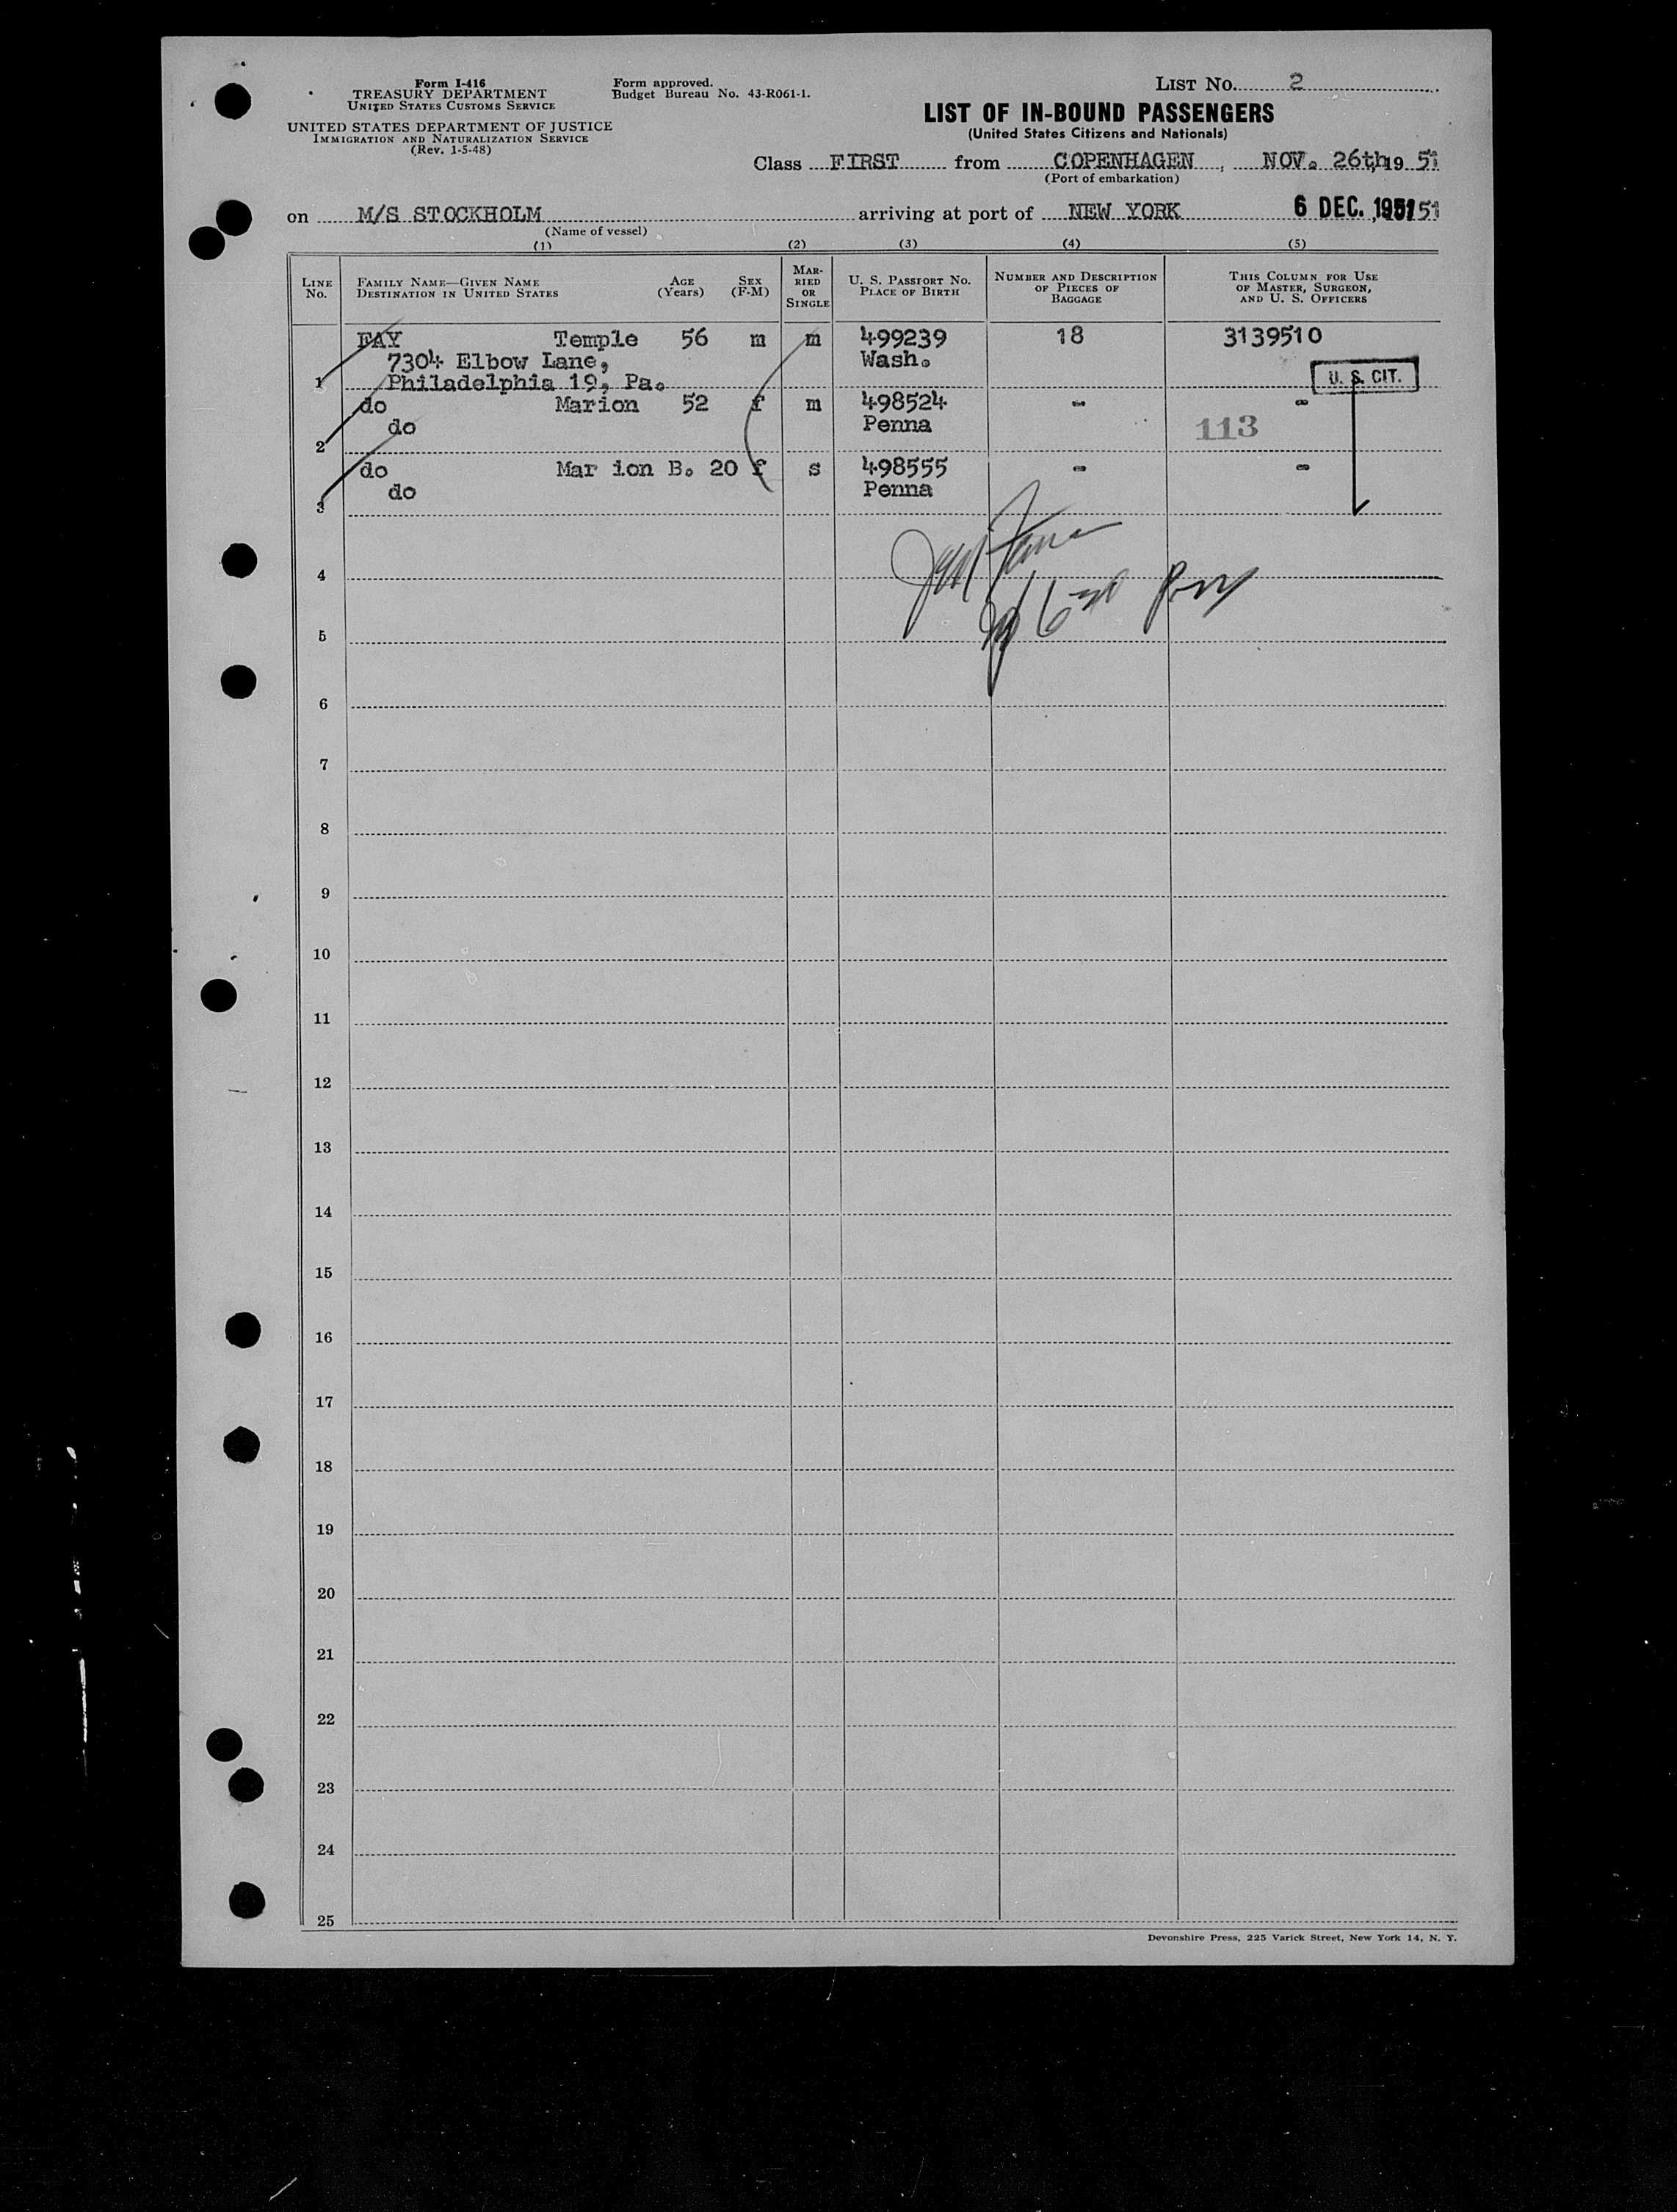 Form I-416
TREASURY DEPARTMENT
UNITED STATES CUSTOMS SERVICE
UNITED STATES DEPARTMENT OF JUSTICE
IMMIGRATION AND NATURALIZATION SERVICE
(Rev. 1-5-48)
Form approved.
Budget Bureau No. 43-R061-1.
LIST No. 2
LIST OF IN-BOUND PASSENGERS
(United States Citizens and Nationals)
Class FIRST from COPENHAGEN, NOV. 26th, 1951
(Port of embarkation)
on M/S STOCKHOLM arriving at port of NEW YORK 6 DEC. 1951 51
(Name of vessel)
(1) (2) (3) (4) (5)
LINE No.
FAMILY NAME—GIVEN NAME
DESTINATION IN UNITED STATES
AGE (Years)
SEX (F-M)
MAR-
RIED
OR
SINGLE
U. S. PASSPORT No.
PLACE OF BIRTH
NUMBER AND DESCRIPTION
OF PIECES OF
BAGGAGE
THIS COLUMN FOR USE
OF MASTER, SURGEON,
AND U. S. OFFICERS
FAY Temple 56 m m 499239 18 3139510
7304 Elbow Lane, Wash.
1 Philadelphia 19, Pa. U. S. CIT.
do Marion 52 f m 498524 - -
do Penna 113
2
do Mar ion B. 20 f s 498555 - -
do Penna
3
4
5
6
7
8
9
10
11
12
13
14
15
16
17
18
19
20
21
22
23
24
25
Devonshire Press, 225 Varick Street, New York 14, N. Y.